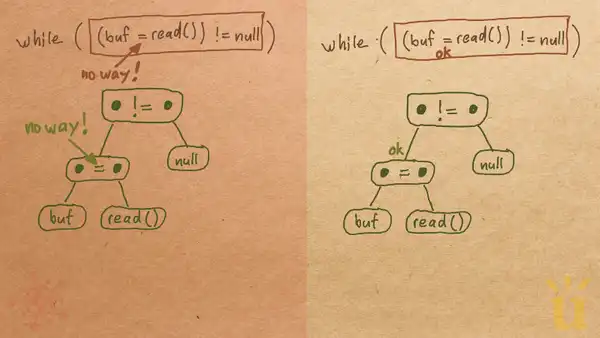 while ( (buf = read()) != null )
no way!
• != •
no way!
null
• = •
buf
read()
while ( (buf = read()) != null )
ok
• != •
ok
null
• = •
buf
read()
u